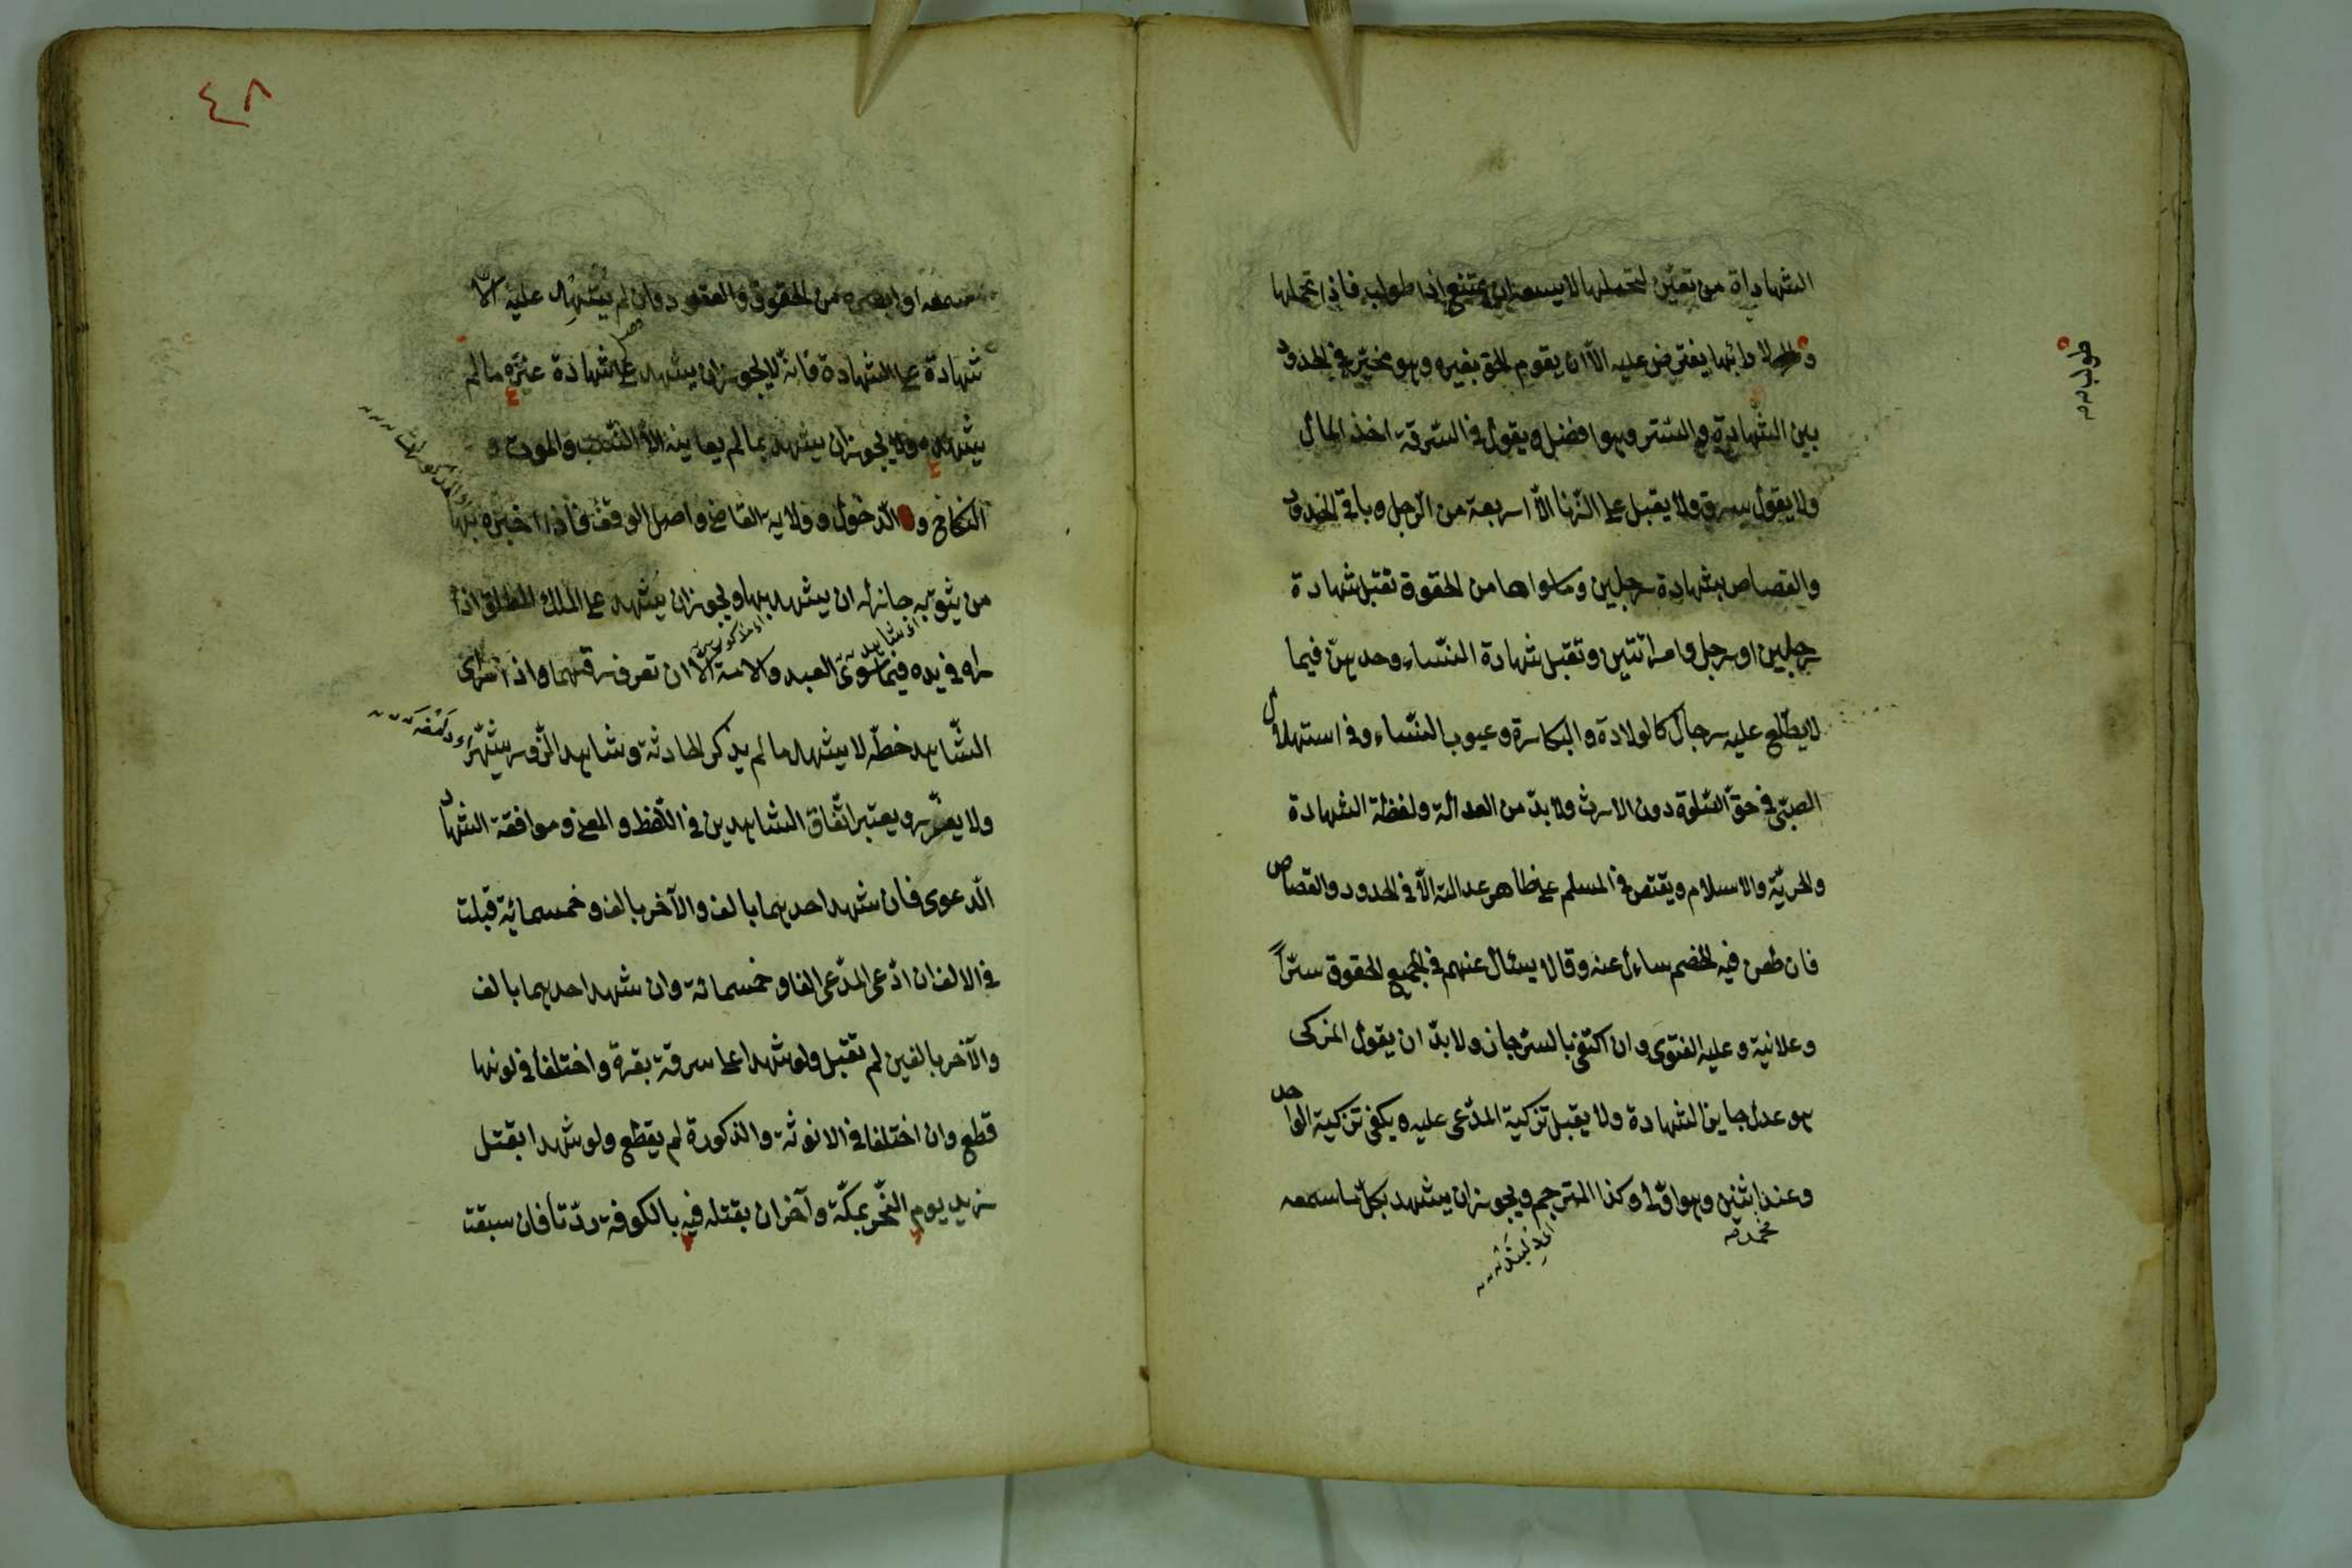 الشهاداة من تعيّن لتحملها لا يسعه ان يمتنع اذا طولب فاذا تحملها
لادائها يفترض عليه الّا ان يقوم الحق بغيره وهو مخيّر في الحدود
بين الشهادة والستر وهو افضل ويقول في السّرقة اخذ المال
ولا يقول سرق ولا يقبل على الزّنا الّا اربعة من الرّجل وباقي الحدود
والقصاص بشهادة رجلين وما سواها من الحقوق تقبل شهادة
رجلين او رجل وامرأتين وتقبل شهادة النّساء وحدهنّ فيما
لا يطّلع عليه رجال كالولادة والبكارة وعيوب النّساء وفي استهلال
الصبّي في حقّ الصّلوة دون الارث ولا بدّ من العدالة ولفظة الشهادة
والحريّة والاسلام ويقتص في المسلم على ظاهر عدالته الّا في الحدود والقصاص
فان طعن فيه الخصم ساءل عنه وقالا يسئال عنهم في الجميع الحقوق سرّاً
وعلانية وعليه الفتوى وان اكتفى بالسرّ جاز ولا بدّ ان يقول المزكى
هو عدل جايز الشهادة ولا يقبل تزكية المدّعى عليه ويكفى تزكية الواحد
وعند اثنين وهو اقول وكذا المترجم ويجوز ان يشهد بكلّ ما سمعه
محمد
طولب
٤٨
سمعه او ابصره من الحقوق والعقود وان لم يشهد عليه الّا
شهادة على الشهادة فانّه لا يجوز ان يشهد على شهادة غيره مالم
يشهده ولا يجوز ان يشهد بما لم يعاينه الّا النّسب والموت و
النكاح و الدّخول وولاية القاضى واصل الوقف فاذا اخبره بها
من يثق به جاز له ان يشهد بها ويجوز ان يشهد على الملك المطلق اذا
راه في يده فيما سوى العبد والامة الّا ان تعرف رقهما واذا راى
الشّاهد خطّه لا يشهد مالم يذكر الحادثة وشاهد الزّور يشهّر
ولا يعزّر ويعتبر اتّفاق الشاهدين في اللّفظ والمعنى وموافقة الشهاد
الدّعوى فان شهد احدهما بالف والآخر بالف وخمسمائة قبلت
في الالف ان ادّعى المدّعى الفا وخمسمائة وان شهد احدهما بالف
والآخر بالفين لم تقبل ولو شهدا على سرقة بقرة واختلفا في لونها
قطع وان اختلفا في الانوثة والذكورة لم يقطع ولو شهدا بقتل
زيد يوم النّحر بمكّة وآخران بقتله فيه بالكوفة ردّتا فان سبقت